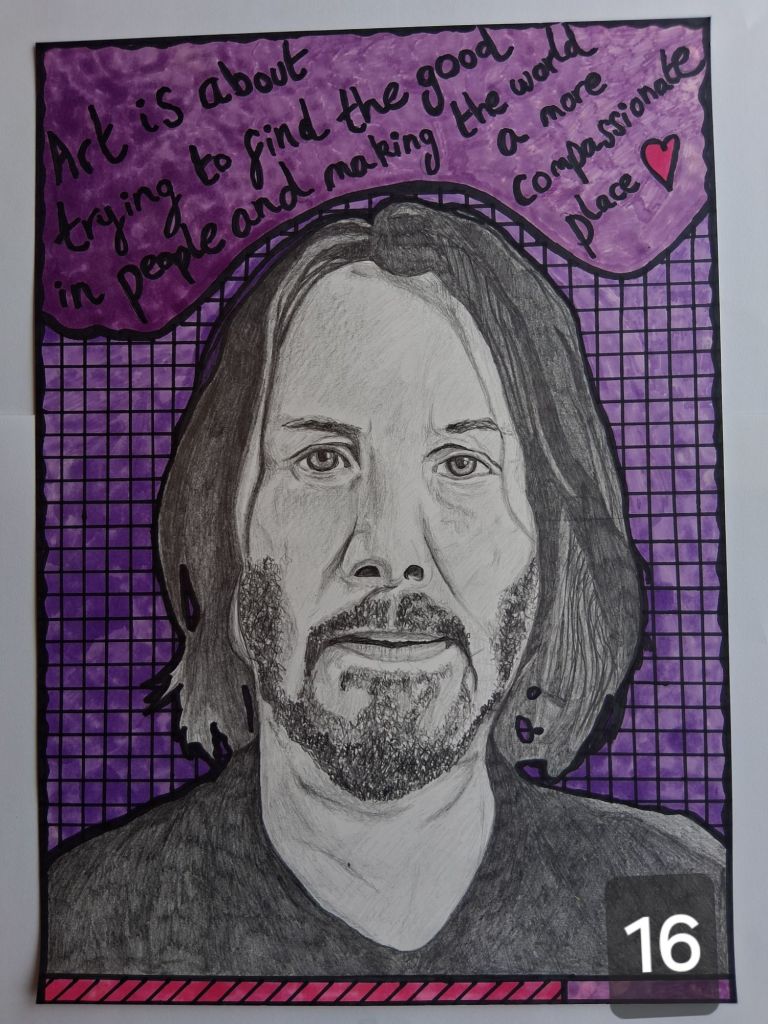 Art is about
trying to find the good
in people and making the world
a more
compassionate
place
16